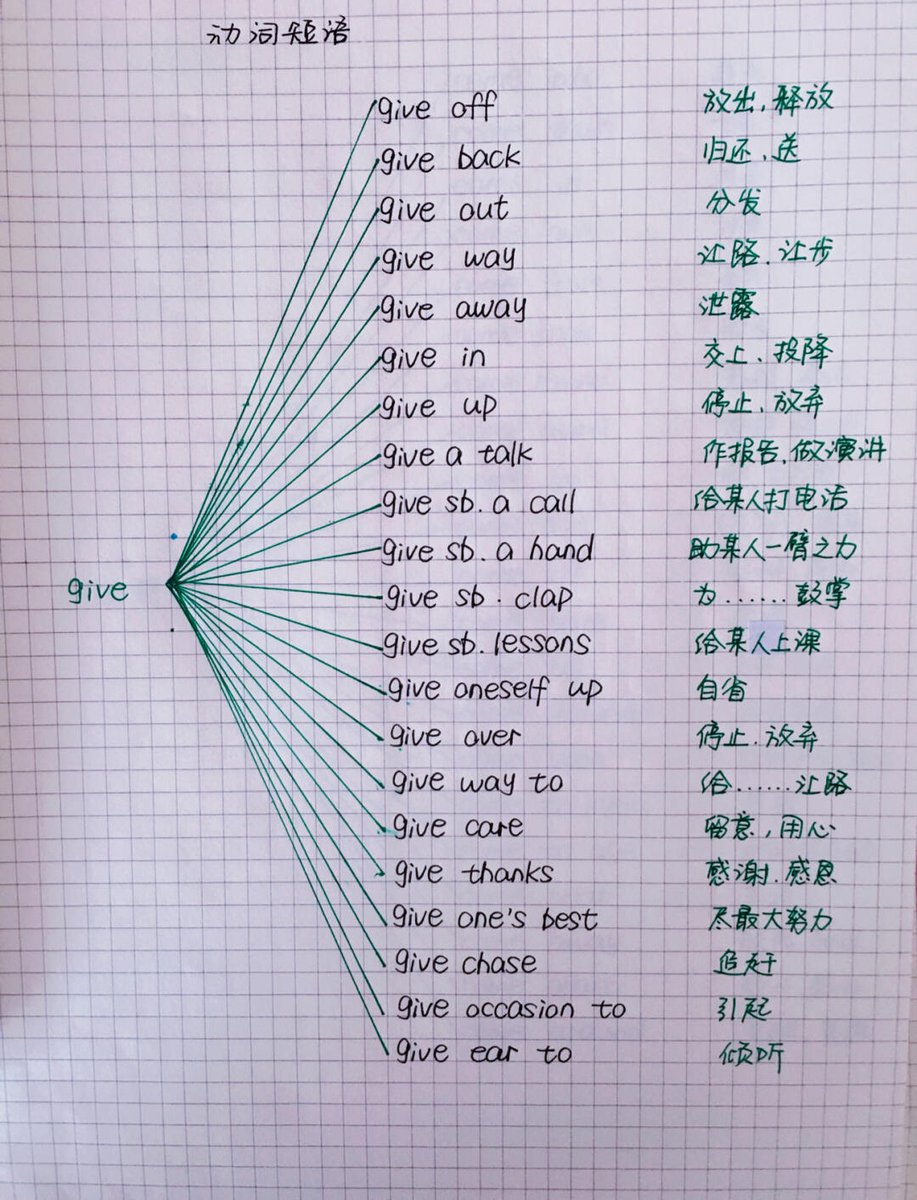 动词短语
give off 放出,释放
give back 归还、送
give out 分发
give way 让路、让步
give away 泄露
give in 交上、投降
give up 停止、放弃
give a talk 作报告、做演讲
give sb. a call 给某人打电话
give sb. a hand 助某人一臂之力
give sb. clap 为......鼓掌
give
give sb. lessons 给某人上课
give oneself up 自省
give over 停止、放弃
give way to 给......让路
give care 留意,用心
give thanks 感谢、感恩
give one's best 尽最大努力
give chase 追赶
give occasion to 引起
give ear to 倾听